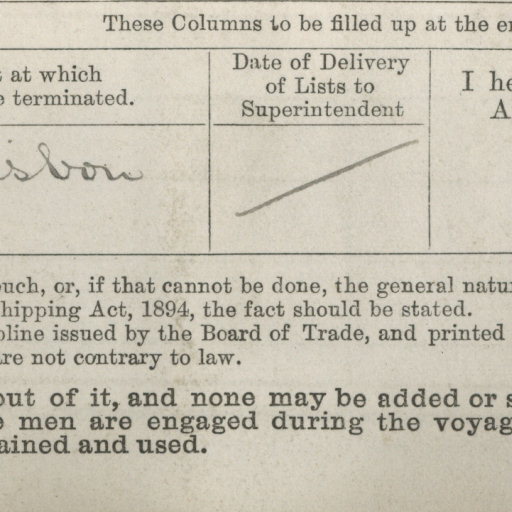 These Columns to be filled up at the e
at which
terminated.
Date of Delivery
of Lists to
Superintendent
I he
A
isbon
uch, or, if that cannot be done, the general natu
hipping Act, 1894, the fact should be stated.
pline issued by the Board of Trade, and printed
re not contrary to law.
out of it, and none may be added or s
e men are engaged during the voyag
ained and used.